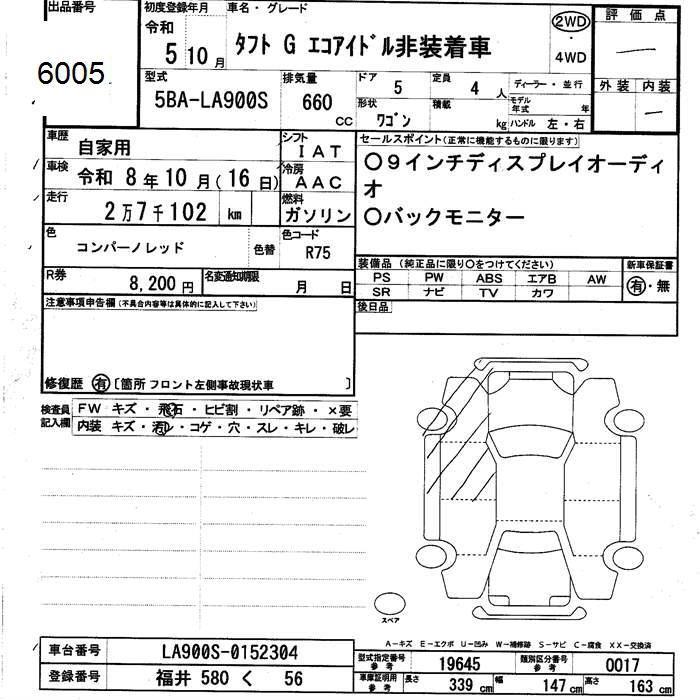 出品番号
6005
初度登録年月
令和
5 10 月
車名・グレード
タフト G エコアイドル非装着車
2WD
・
4WD
評価点
外装 内装
型式
5BA-LA900S
排気量
660
CC
ドア
5
定員
4 人
形状
ワゴン
積載
kg
ディーラー・並行
モデル
年式 年
ハンドル 左・右
車歴
自家用
シフト
IAT
車検
令和 8年 10月(16日)
冷房
AAC
走行
2万7千102 km
燃料
ガソリン
色
コンパーノレッド
色替
色コード
R75
R券
8,200 円
名変通知期限
月 日
セールスポイント(正常に機能するものに限ります)
〇9インチディスプレイオーディ
オ
〇バックモニター
装備品 (純正品に限り〇をつけてください)
PS PW ABS エアB AW
SR ナビ TV カワ
新車保証書
有・無
後日品
注意事項申告欄(不具合内容等は具体的に記入して下さい)
修復歴 有 〔箇所 フロント左側事故現状車 〕
検査員
記入欄
FW キズ・飛石・ヒビ割・リペア跡・×要
内装 キズ・汚レ・コゲ・穴・スレ・キレ・破レ
スペア
A-キズ E-エクボ U-凹み W-補修跡 S-サビ C-腐食 XX-交換済
車台番号
LA900S-0152304
登録番号
福井 580 く 56
型式指定番号
参考
19645
類別区分番号
参考
0017
車庫証明用
参考
長さ 339 cm 幅 147 cm 高さ 163 cm